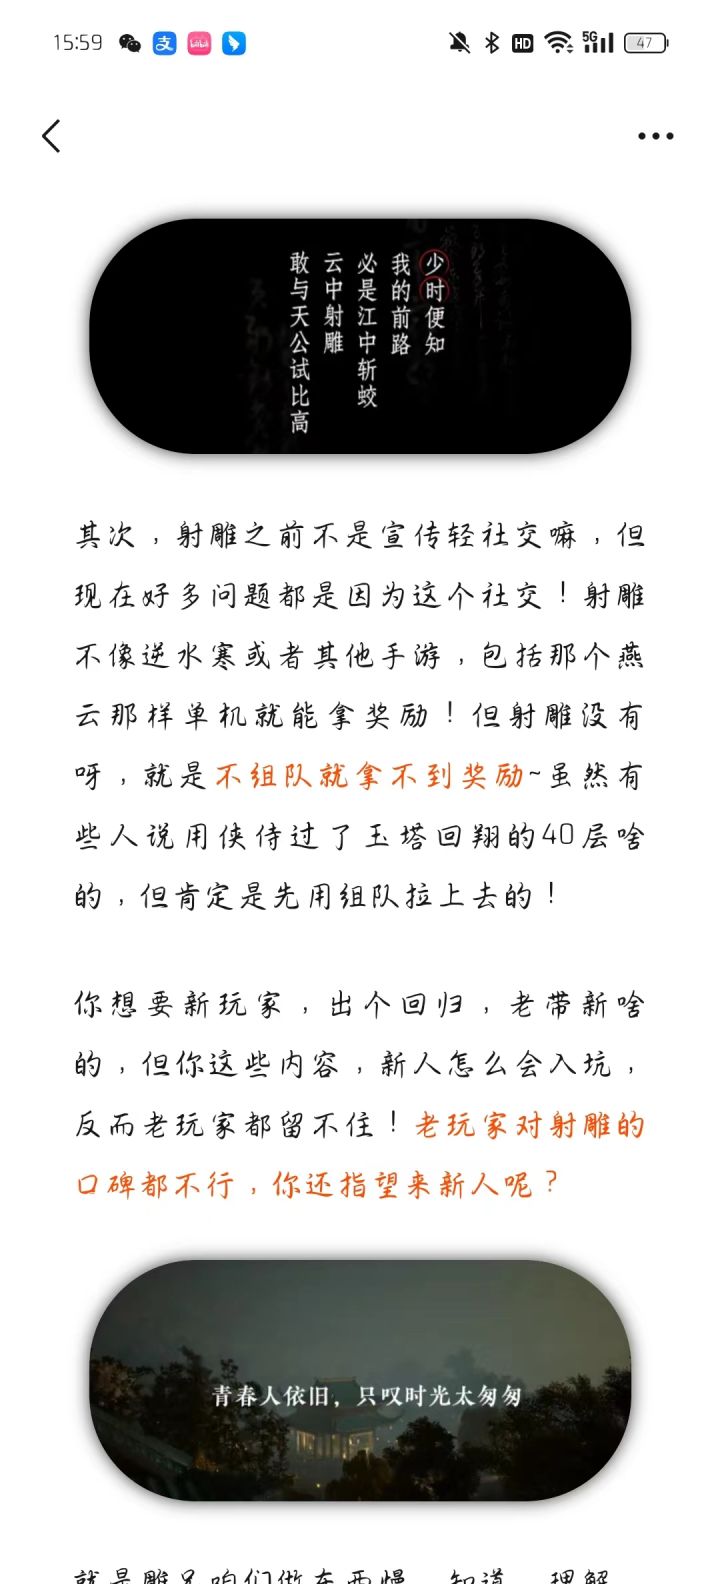 15:59
HD
5G
47
少时便知
我的前路
必是江中斩蛟
云中射雕
敢与天公试比高
其次，射雕之前不是宣传轻社交嘛，但
现在好多问题都是因为这个社交！射雕
不像逆水寒或者其他手游，包括那个燕
云那样单机就能拿奖励！但射雕没有
呀，就是不组队就拿不到奖励~虽然有
些人说用侠侍过了玉塔回翔的40层啥
的，但肯定是先用组队拉上去的！
你想要新玩家，出个回归，老带新啥
的，但你这些内容，新人怎么会入坑，
反而老玩家都留不住！老玩家对射雕的
口碑都不行，你还指望来新人呢？
青春人依旧，只叹时光太匆匆
就是雕兄咱们做东西慢，知道，理解，